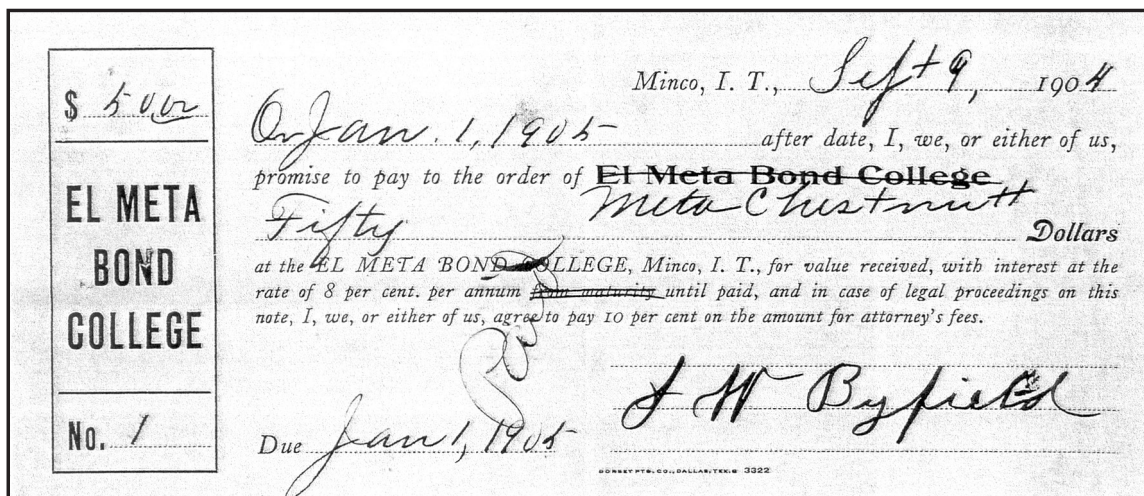 $ 50.00
EL META
BOND
COLLEGE
No. 1
Minco, I. T., Sept 9, 1904
On Jan. 1, 1905 after date, I, we, or either of us,
promise to pay to the order of El Meta Bond College
Meta Chestnutt
Fifty Dollars
at the EL META BOND COLLEGE, Minco, I. T., for value received, with interest at the
rate of 8 per cent. per annum from maturity until paid, and in case of legal proceedings on this
note, I, we, or either of us, agree to pay 10 per cent on the amount for attorney's fees.
Paid
J W Byfield
Due Jan 1, 1905
DORSEY PTG. CO., DALLAS, TEXAS 3322